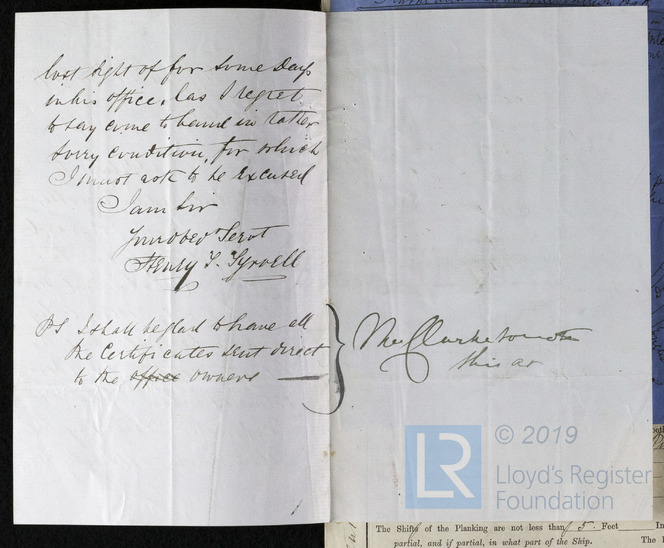 lost sight of for some Days
in his office, has I regret
to say come to hand in rather
sorry condition, for which
I must ask to be Excused
I am Sir
Your obed Servt
Henry T. Tyrrell
PS I shall be glad to have all
the Certificates sent direct
to the office owners
Mr Clarke to note
this
© 2019
LR
Lloyd's Register
Foundation
The Shifts of the Planking are not less than 5 Feet In
partial, and if partial, in what part of the Ship. The